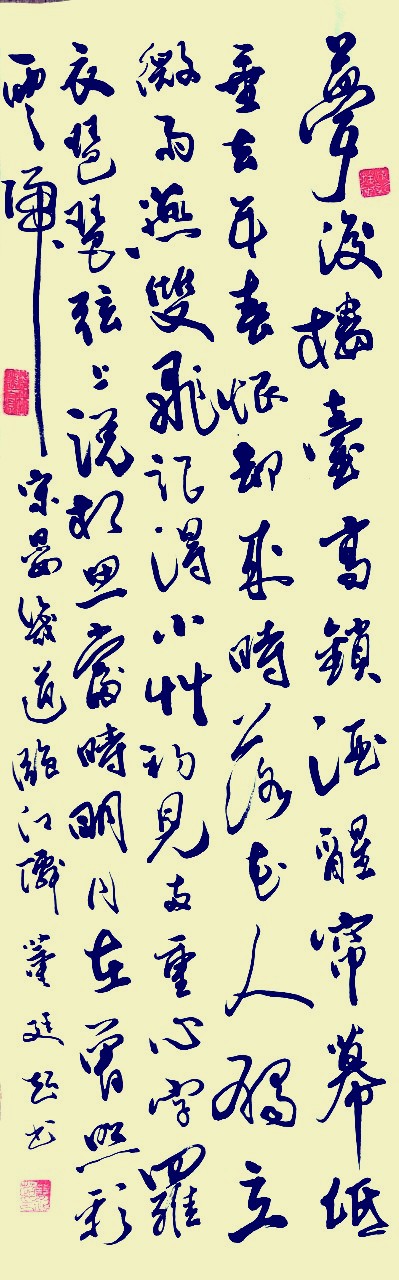 夢後樓臺高鎖酒醒帘幕低
垂去年春恨却來時落花人獨立
微雨燕雙飛記得小艸初見两重心字羅
衣琵琶弦上說相思當時明月在曾照彩
雲歸宋晏幾道臨江僊董廷超书